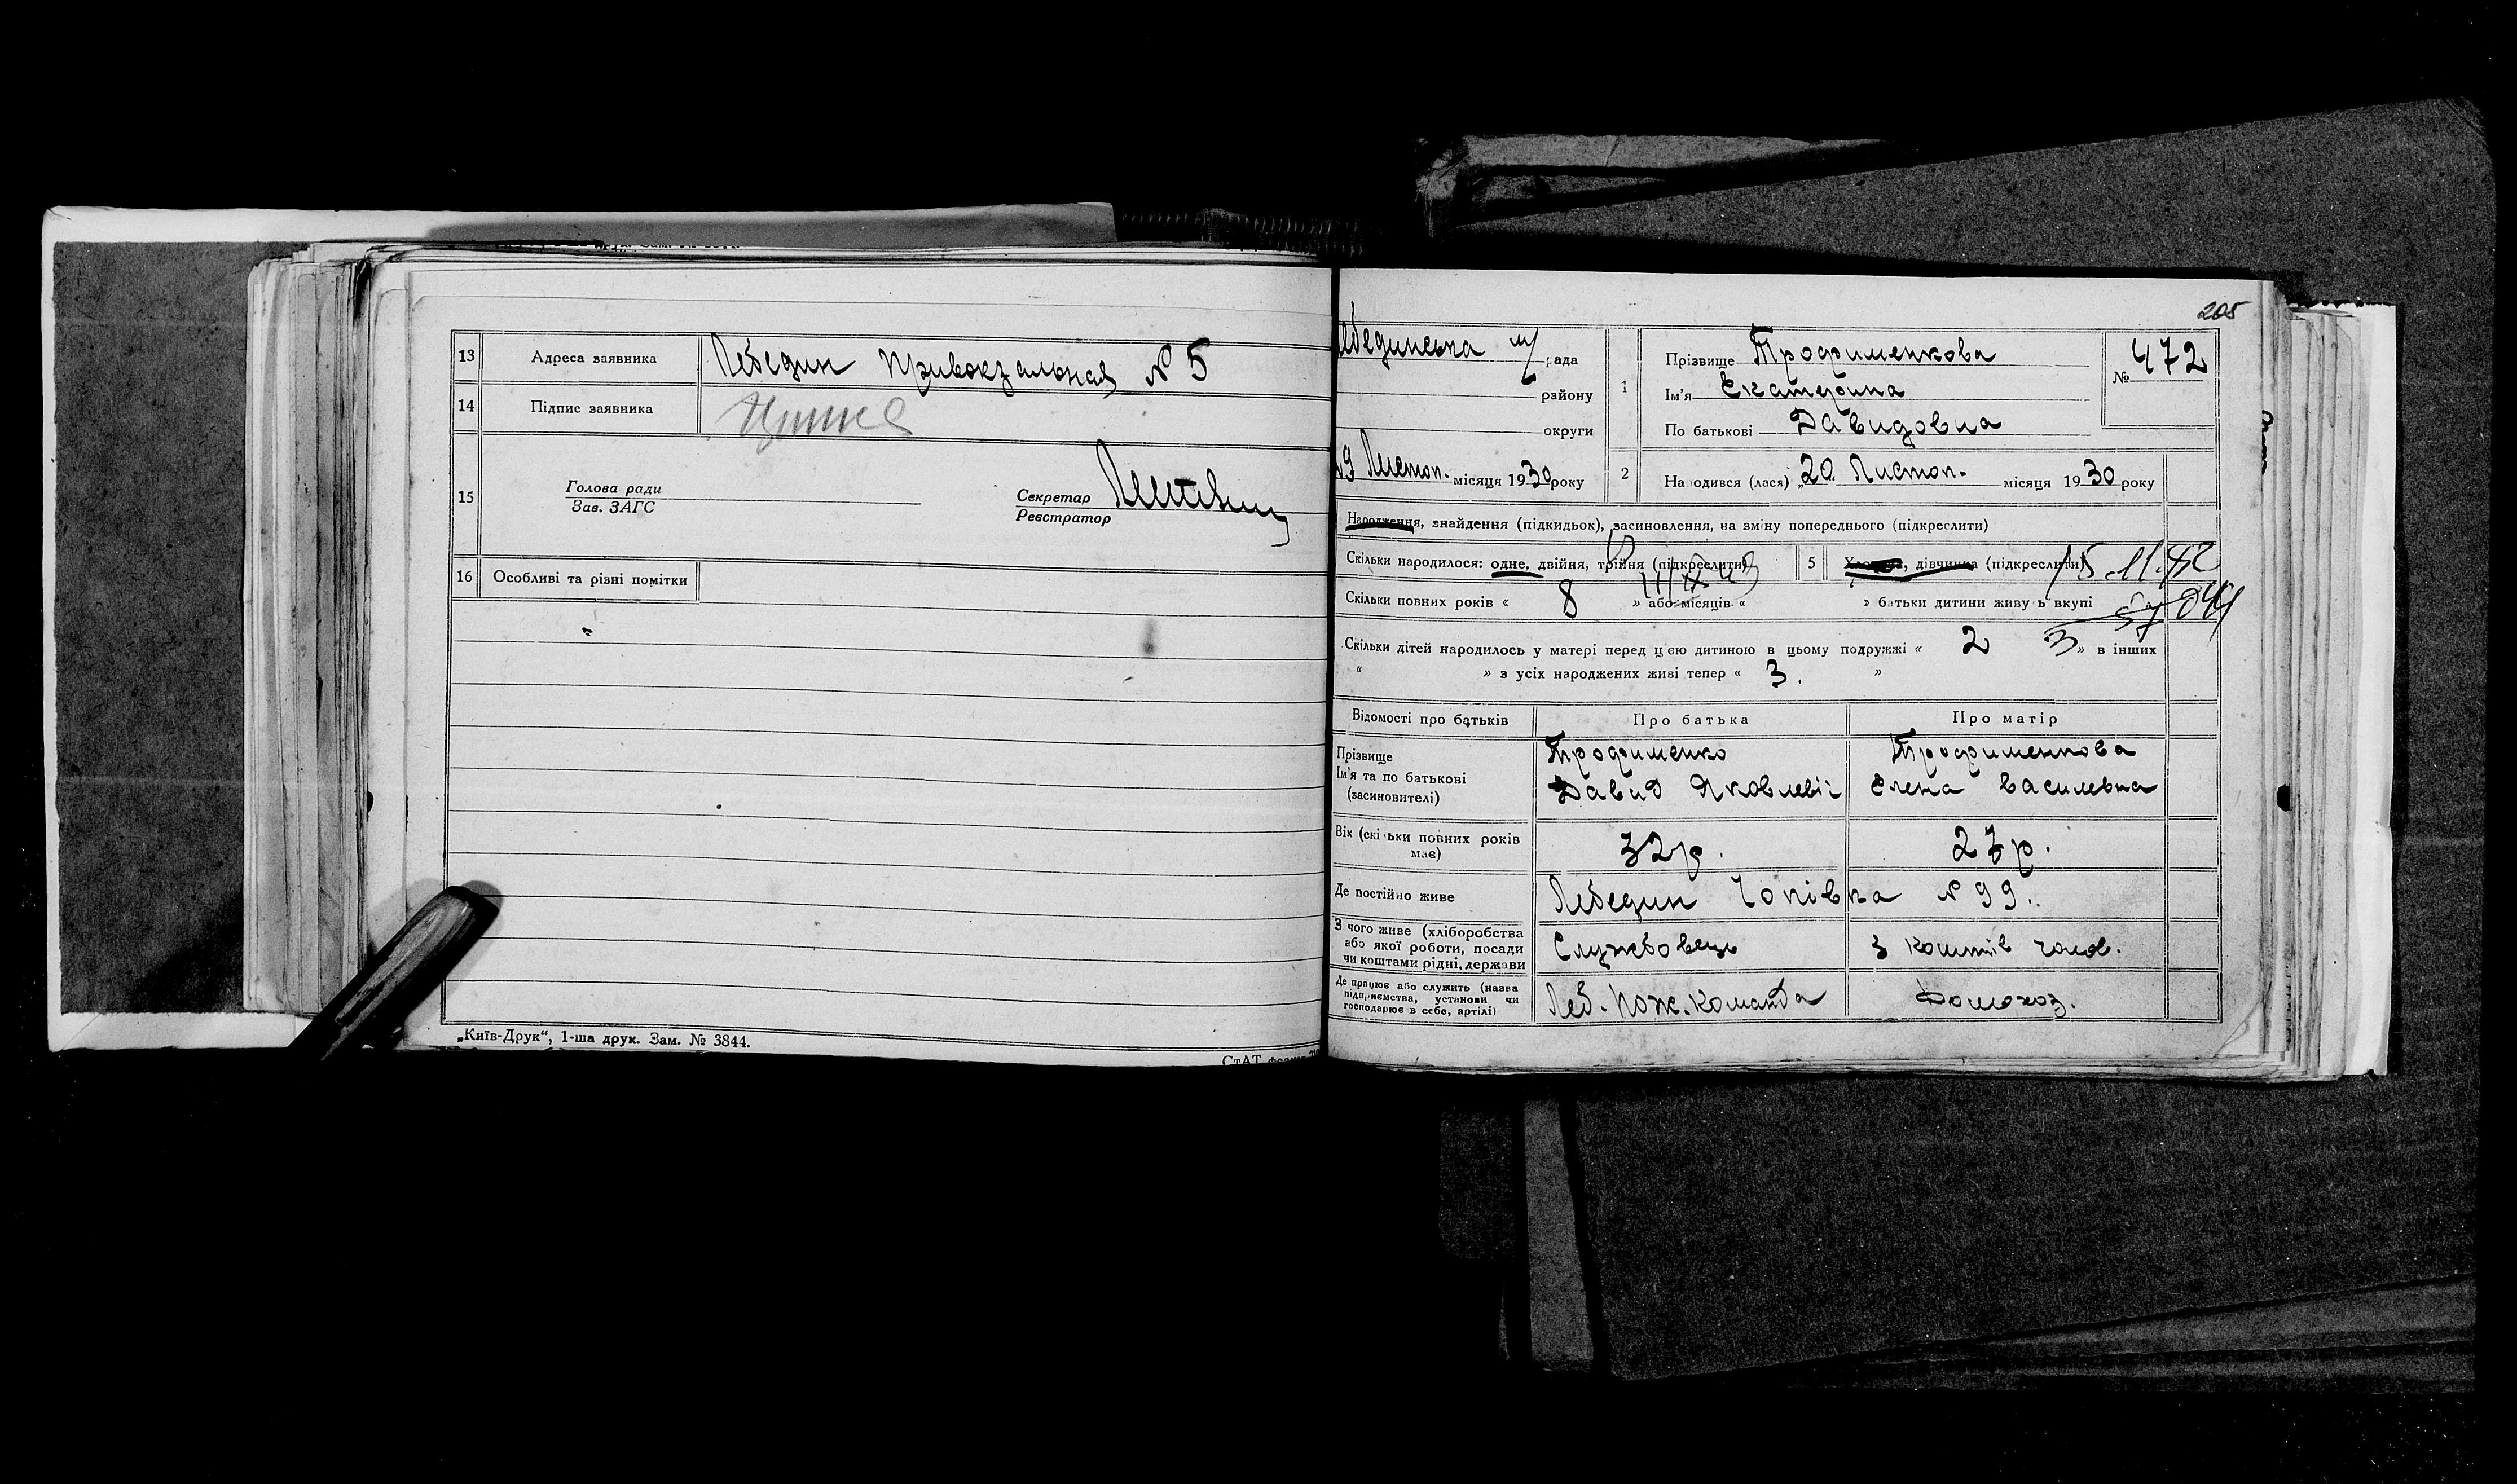 13 Адреса заявника Лебедин Привокзальная № 5
14 Підпис заявника
15 Голова ради
Зав. ЗАГС
Секретар
Реєстратор
16 Особливі та різні помітки
„Київ-Друк“, 1-ша друк. Зам. № 3844.
СтАТ
205
Лебединська м/рада
району
округи
місяця 1930 року
Листоп.
1 Прізвище Трофименкова
Ім'я Екатерина
По батькові Давидовна
№ 472
2 Народився (лася) „20. Листоп. місяця 1930 року
Народження, знайдення (підкидьок), засиновлення, на зміну попереднього (підкреслити)
Скільки народилося: одне, двійня, трійня (підкреслити)
5 Хлопець, дівчинка (підкреслити)
Скільки повних років « 8 » або місяців « » батьки дитини живуть вкупі
Скільки дітей народилось у матері перед цією дитиною в цьому подружжі « 2 3 » в інших
« » з усіх народжених живі тепер « 3. »
Відомості про батьків Про батька Про матір
Прізвище Трофименко Трофименкова
Ім'я та по батькові Давид Яковлевіч Єлена Василевна
(засиновителі)
Вік (скільки повних років має) 32 р. 27 р.
Де постійно живе Лебедин Чопівка № 99.
З чого живе (хліборобства Службовець З коштів чолов.
або якої роботи, посади
чи коштами рідні, держави
Де працює або служить (назва Леб. Пож. Команда Домохоз.
підприємства, установи чи
господарює в себе, артілі)